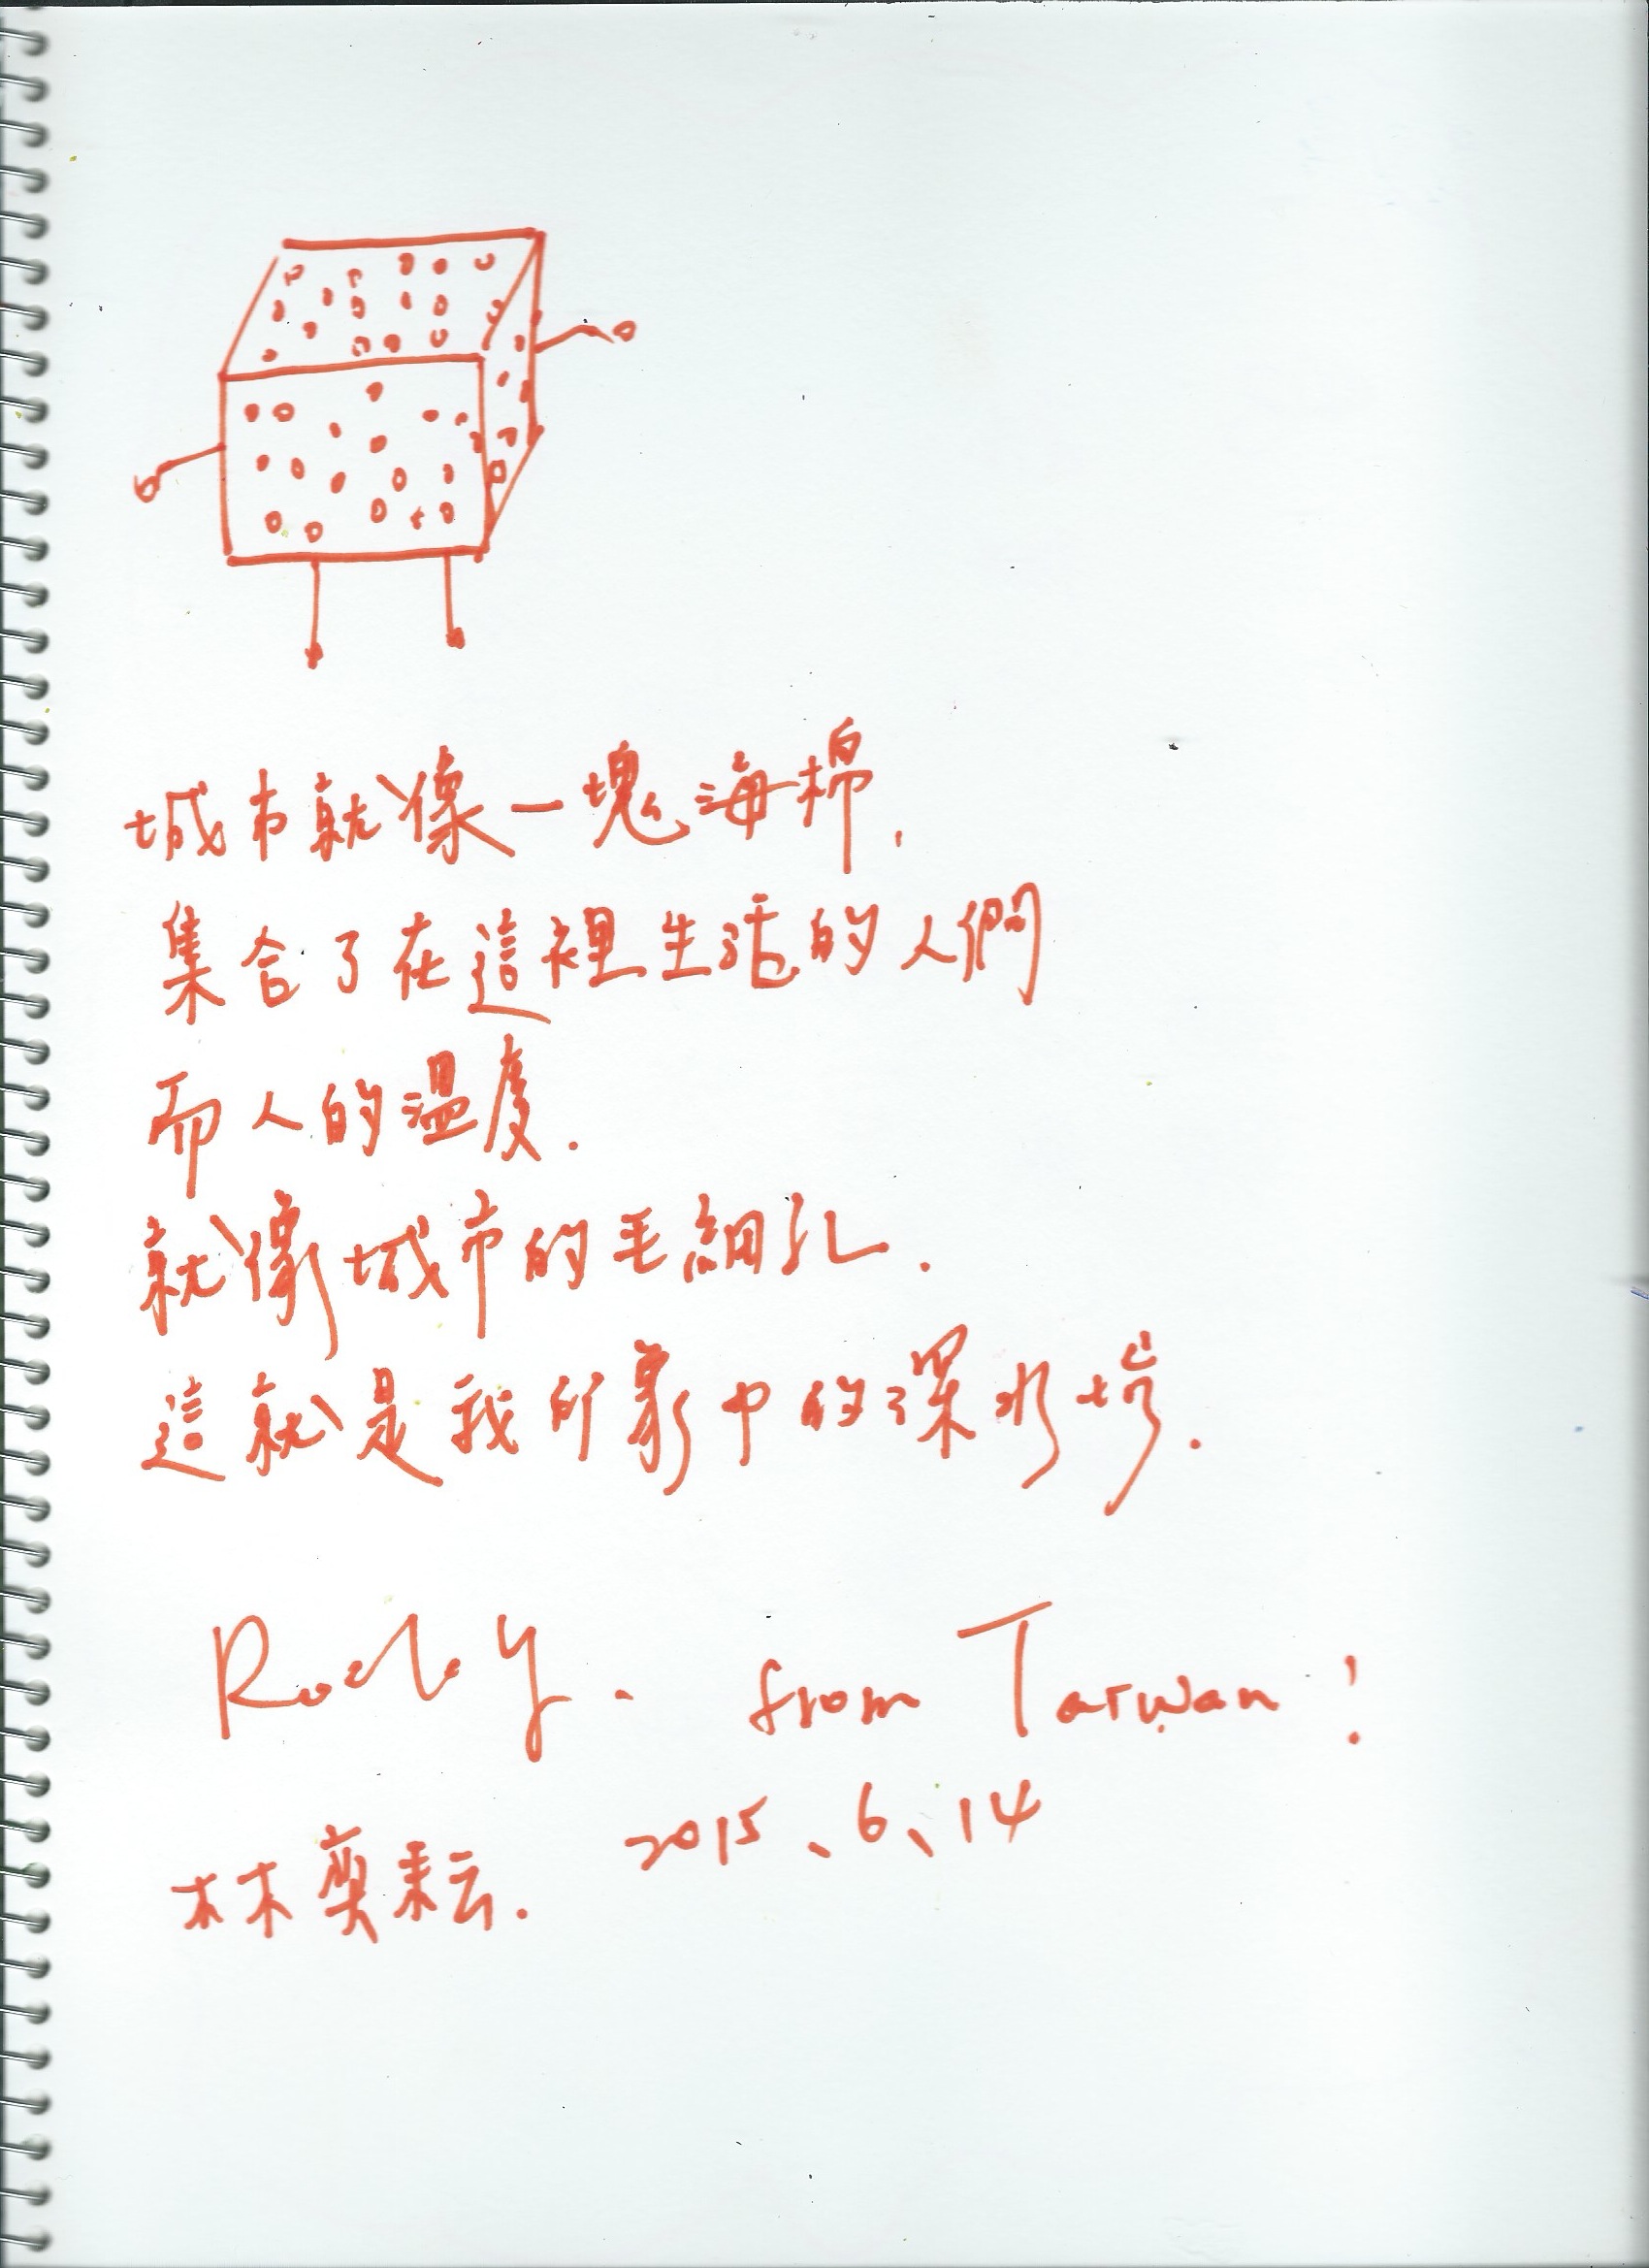 城市就像一塊海棉,
集合了在這裡生活的人們
而人的溫度.
就像城市的毛細孔.
這就是我印象中的深水埗.
Rocky. from Taiwan!
2015、6、14
林奕耘.